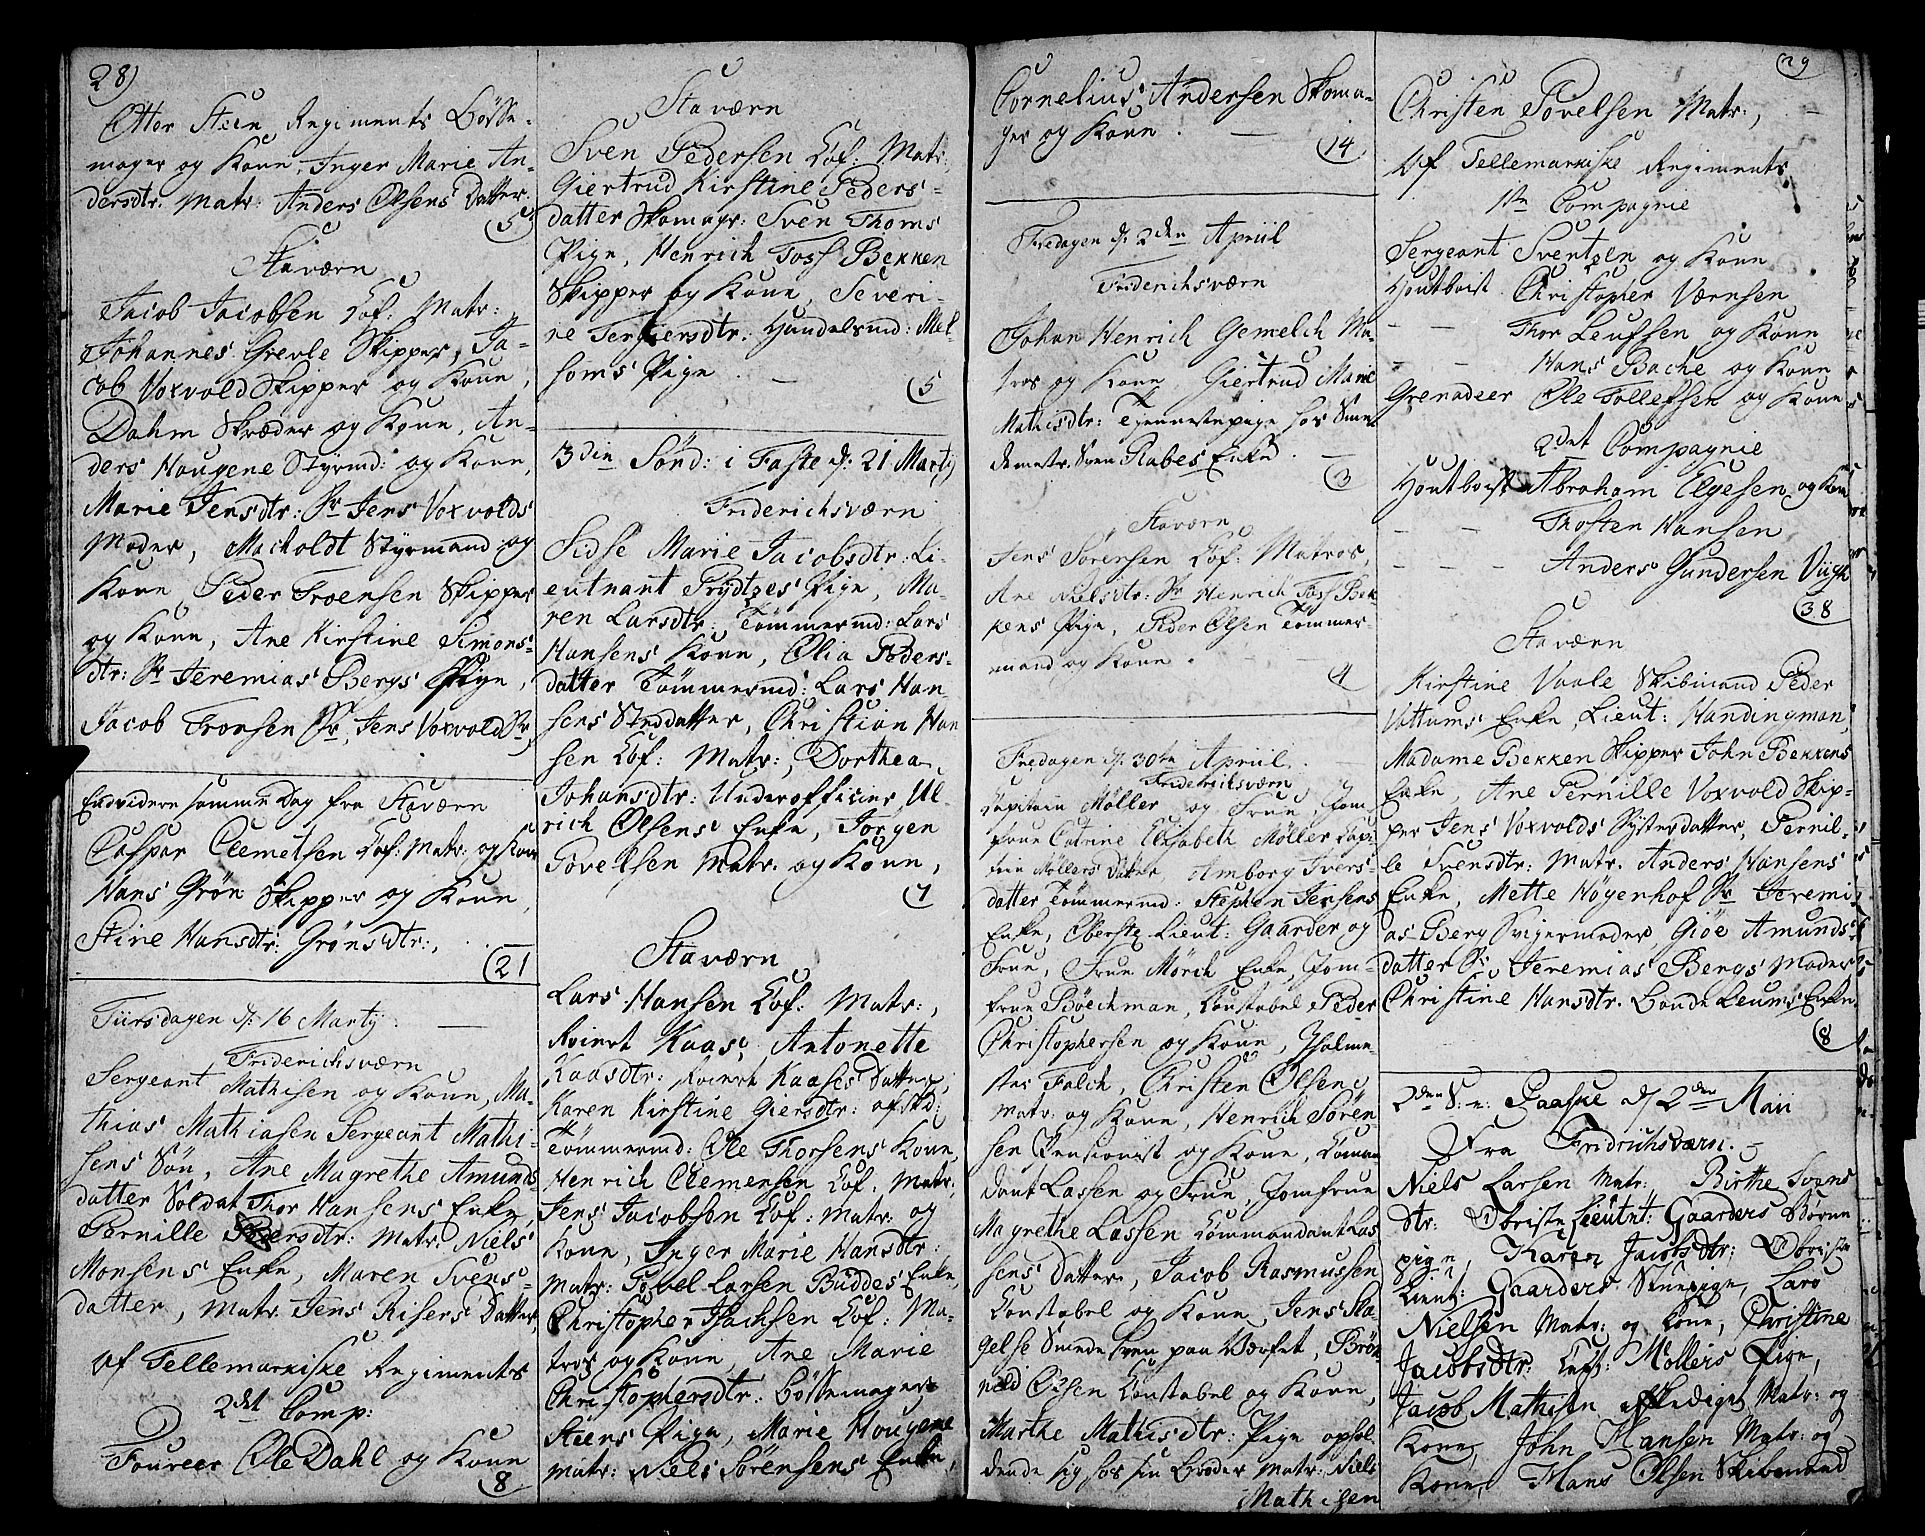 28)
Otter Steen Regiments Bösse-
mager og Kone, Inger Marie An-
dersdtr. Matr: Anders Olsens Datter.
5
Staværn
Jacob Jacobsen Lof: Matr:
Johannes Grevle Skipper, Ja-
cob Voxvold Skipper og Kone,
Dahm Skræder og Kone, An-
ders Hougene Styrmd: og Kone,
Marie Jensdtr: Sr Jens Voxvolds
Moder, Macholdt Styrmand og
Kone, Peder Troensen Skipper
og Kone, Ane Kirstine Simons-
dtr: Sr Jeremias Bergs Pige,
Jacob Tronsen Sr, Jens Voxvold Sr,
Endvidere samme Dag fra Staværn
Caspar Clemetsen Lof: Matr: og Kone
Hans Grön Skipper og Kone,
Stine Hansdtr: Gröns dtr:,
21
Tiirsdagen d: 16 Martij.
Friderichsværn
Sergeant Mathisen og Kone, Ma-
thias Mathiasen Sergeant Mathi-
sens Sön, Ane Magrethe Amunds-
datter Soldat Thor Hansens Enke,
Pernille Persdtr: Matr: Niels
Monsens Enke, Maren Svens-
datter, Matr: Jens Risers Datter,
Af Tellemarkiske Regiments
2det Comp:
Foureer Ole Dahl og Kone
8
Staværn
Sven Pedersen Lof: Matr:
Giertrud Kirstine Peders-
datter Skomagr: Sven Thoms
Pige, Henrich Foss Bekken
Skipper og Kone, Severi-
ne Tergersdtr: Handelsmd: Mel-
soms Pige.
5
3die Sönd: i Faste d: 21 Martij
Friderichsværn
Sidse Marie Jacobsdtr: Li-
eutnant Prydtzes Pige, Ma-
ren Larsdtr: Tömmermd: Lars
Hansens Kone, Olia Peders-
datter Tömmermd: Lars Han-
sens Stedatter, Christian Han
sen Lof: Matr:, Dorthea
Johansdtr: Underofficier Ul-
rich Olsens Enke, Jörgen
Povelsen Matr: og Kone,
7
Staværn
Lars Hansen Lof: Matr:,
Kaas, Antonette
Kaasdtr: Kaases Datter,
Karen Kirstine Giersdtr: afskd:
Tömmermd: Ole Thorsens Kone,
Henrich Clemensen Lof: Matr,
Jens Jacobsen Lof: Matr: og
Kone, Inger Marie Hansdtr:
Matr: Povel Larsen Buddes Enke,
Christopher Isachsen Lof: Ma-
tros og Kone, Ane Marie
Christophersdtr: Bössemager
Steens Pige, Marie Hougene
Matr: Niels Sörensens Enke,
Cornelius Andersen Skoma-
ger og Kone.
14
Fredagen d: 2den Apriil
Friderichsværn
Johan Henrich Gemelch Ma-
tros og Kone, Giertrud Marie
Mathisdtr: Tjennestepige hos Sme-
demstr: Sven Rabes Enke.
3
Staværn
Jens Sörensen Lof: Matros,
Ane Nielsdtr: Sr Henrich Foss Bek-
kens Pige, Peder Olsen Tömmer
mand og Kone.
4
Fredagen d: 30te Apriil.
Friderichsværn
Capitain Möller og Frue, Jom
frue Catrine Elisabeth Möller Capi-
tain Möllers Datter, Amborg Ivers-
datter Tömmermd: Stephen Jensens
Enke, Oberste Lieut: Gaarder og
Frue, Frue Mörch Enke, Jom-
frue Böeckman, Constabel Peder
Christophersen og Kone, Holme-
ster Falch, Christen Olsen,
Matr: og Kone, Henrich Sören
sen Pensionist og Kone, Comman
dant Lassen og Frue, Jomfrue
Magrethe Lassen Commandant Las
sens Datter, Jacob Rasmussen
Constabel og Kone, Jens Sla
gelse Smede Sven paa Værfet, Brön
nild Olsen Constabel og Kone,
Marthe Mathisdtr: Pige ophol
dende sig hos sin Broder Matr: Niels
Mathisen
29
Christen Povelsen Matr:,
Af Tellemarkiske Regiments
1ste Compagnie
Sergeant Sventzen og Kone
Houtboist Christopher Værnsen
- - Thor Leufsen og Kone
- - Hans Bache og Kone
Grenadeer Ole Tollefsen og Kone
2det Compagnie
Houtboist Abraham Elgesen og Kone
- - Thosten Hansen
- - - Anders Gundersen Viigh
38
Staværn
Kirstine Vaale Skibmand Peder
Vattums Enke, Lieut: Handingman,
Madame Bekken Skipper John Bekkens
Enke, Ane Pernille Voxvold Skip-
per Jens Voxvolds Systerdatter, Pernil-
le Svensdtr: Matr: Anders Hansens
Enke, Mette Högenhof Sr Jeremi
as Berg Svigermoder, Giöe Amunds-
datter Sr: Jeremias Bergs Moder
Christine Hansdtr. Enke,
8
2den S: e: Paaske d: 2den Maii
Fra Fridrichsværn.
Niels Larsen Matr:, Birthe Svens
dtr: Obriste Lieutnt: Gaarders Börne
pige, Karen Jacobsdtr: Obriste
Lieut: Gaarders Stuepige, Lars
Nielsen Matr: og Kone, Christine
Jacobsdtr: Capt: Möllers Pige,
Jacob Mathisen afskediget Matr: og
Kone, John Hansen Matr: og
Kone, Hans Olsen Skibmand